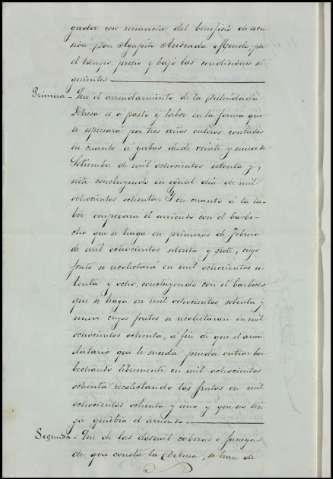 gador con renuncia del beneficio de
Don Agapito Andrada Mendo por
el tiempo, precio y bajo las condiciones si-
guientes
Primera - Que el arrendamiento de la deslindada
Dehesa es a pasto y labor en la forma que
se espresará por tres años enteros contados
en cuanto a yerbas desde veinte y nueve de
Setiembre de mil ochocientos setenta y
siete concluyendo en igual dia de mil
ochocientos ochenta. Y en cuanto a la la-
bor empezara el arriendo con el barbe-
cho que se haga en primeros de Febrero
de mil ochocientos setenta y siete, cuyo
fruto se recolectará en mil ochocientos se-
tenta y ocho, concluyendo con el barbecho
que se haga en mil ochocientos setenta y
nueve cuyos frutos se recolectaran en mil
ochocientos ochenta, a fin de que el arren-
datario que le suceda pueda entrar bar-
bechando libremente en mil ochocientos
ochenta recolectando los frutos en mil
ochocientos ochenta y uno y que es
el arriendo
Segunda - Que de las dos mil cabezas o fanegas
de que consta la Dehesa, se han de